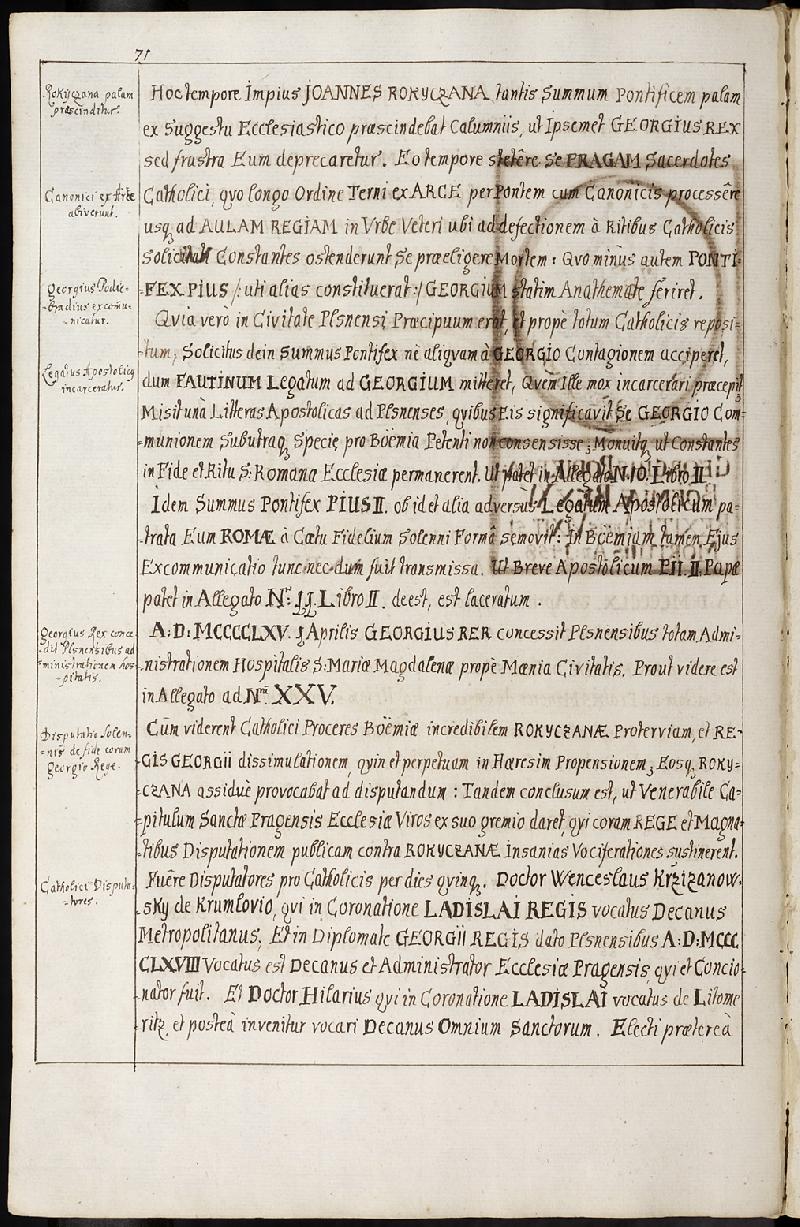 71
Rokyczana palam
præscinditur.
Hoc tempore Impius JOANNES ROKYCZANA tantis Summum Pontificem palam
ex Suggestu Ecclesiastico præscindebat Calumniis, ut Ipsemet GEORGIUS REX
sed frustra Eum deprecaretur. Eo tempore stetêre Se PRAGAM Sacerdotes
Canonici ex Arce
abiverunt.
Catholici, qvo longo Ordine Terni ex ARCE per Pontem cum Canonicis processêre
usq, ad AULAM REGIAM in Vrbe Veteri ubi ad defectionem à Ritibus Catholicis
Constantes ostenderunt Se præeligere Mortem: Qvo minùs autem PONTI-
Georgius Podie-
-bradius excomu-
-nicatur.
-FEX PIUS /: uti alias constituerat :/ GEORGIUM statim Anathemate feriret.
Qvia verò in Civitate Plsnensi Præcipuum erat, et propè totum Catholicis reposi-
-tum, Solicitus dein Summus Pontifex nè aliqvam à GEORGIO Contagionem acciperet,
Legatus Apostolicq
incarceratur.
dum FAUTINUM Legatum ad GEORGIUM mitteret, Qvem Ille mox incarcerari præcepit,
Misit unà Litteras Apostolicas ad Plsnenses, qvibus Eis significavit Se GEORGIO Com-
-munionem Subutraq, Specie pro Boëmia Petenti non consensisse; Monuitq, ut Constantes
in Fide et Ritu S: Romanæ Ecclesiæ permanerent. Ut patet in Allegato N. 10. Libro II.
Idem Summus Pontifex PIUS II. ob id et alia adversus Legatum Apostolicum pa-
-trata Eum ROMÆ à Cœtu Fidelium Solenni Formâ semovit: In Boëmiam tamen Ejus
Excommunicatio tunc nec dum fuit transmissa. Ut Breve Apostolicum PII. II. Papæ
patet in Allegato Nro. 11. Libro II. deest, est laceratum.
Georgius Rex conce-
-dit Plsnensibus ad
-ministrationem hos-
-pitalis.
A: D: MCCCCLXV. 1 Aprilis GEORGIUS RER concessit Plsnensibus totam Admi-
-nistrationem Hospitalis S: Mariæ Magdalenæ propè Mœnia Civitatis. Prout videre est
in Allegato ad Nrm XXV.
Disputatio Solem-
-nis de fide coram
Georgio Rege.
Cùm viderent Catholici Proceres Boëmiæ incredibilem ROKYCZANÆ Proterviam, et RE-
-GIS GEORGII dissimulationem, qvin et perpetuam in Hæresim Propensionem; Eosq, ROKY-
-CZANA assiduè provocabat ad disputandum: Tandem conclusum est, ut Venerabile Ca-
-pitulum Sanctæ Pragensis Ecclesiæ Viros ex suo gremio daret, qvi coram REGE et Magna-
-tibus Disputationem publicam contra ROKYCZANÆ Insanias Vociferationes sustinerent.
Catholici Disputa-
-tores.
Fuêre Disputatores pro Catholicis per dies qvinq,. Doctor Wenceslaus Krzizanow-
-sky de Krumlovio, qvi in Coronatione LADISLAI REGIS vocatus Decanus
Metropolitanus, Et in Diplomate GEORGII REGIS dato Plsnensibus A: D: MCCC
CLXVIII Vocatus est Decanus et Administrator Ecclesiæ Pragensis, qvi et Concio-
-nator fuit. Et Doctor Hilarius qvi in Coronatione LADISLAI vocatus de Litome
-ritz, et posteà invenitur vocari Decanus Omnium Sanctorum. Electi prætereà